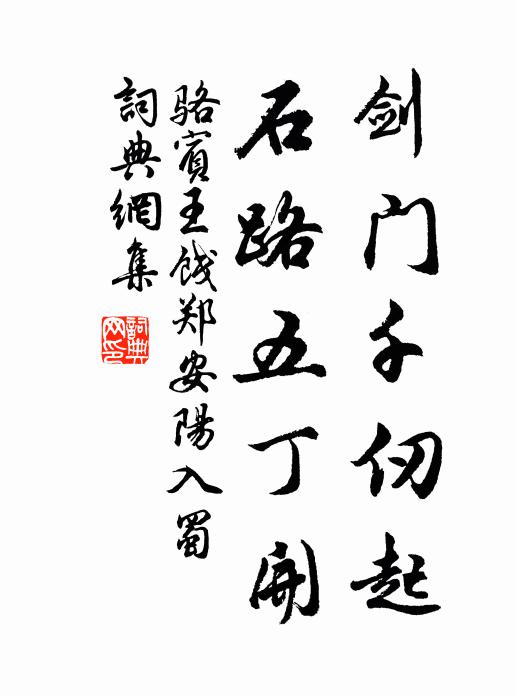 剑门千仞起
石路五丁開
骆賓王餞郑安陽入蜀
詞典網集
詞典网印